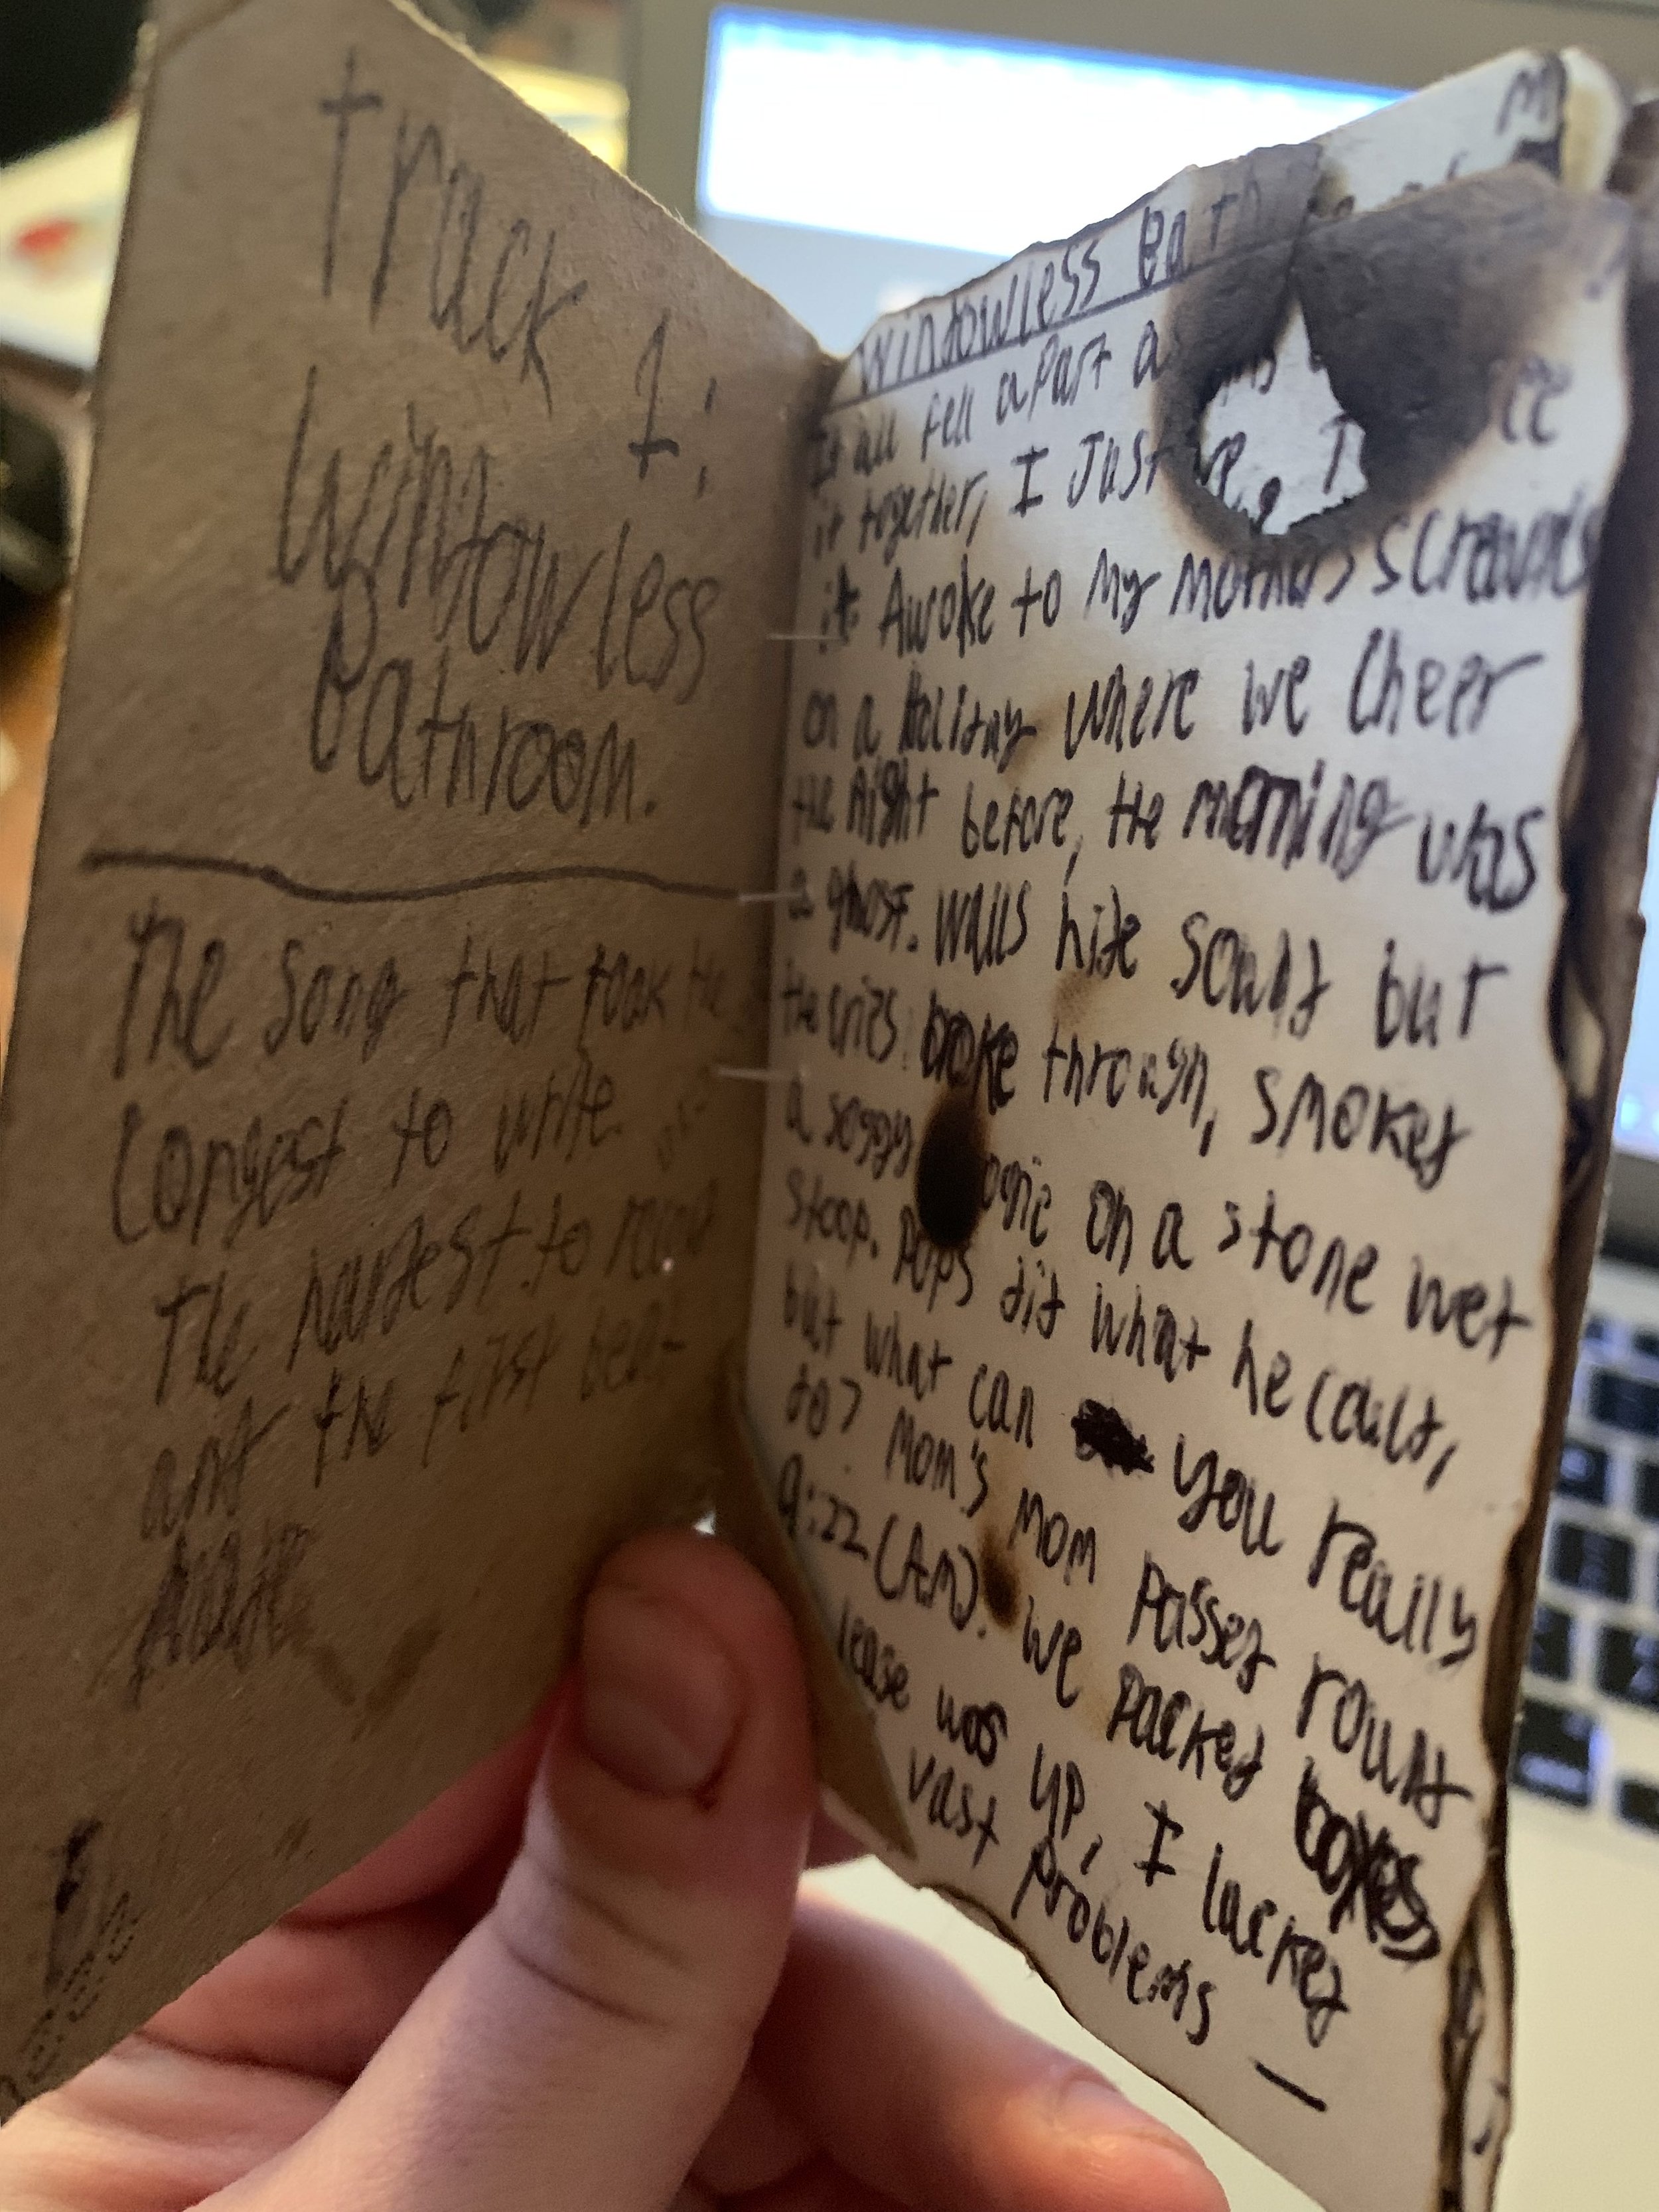 Track 1:
Windowless
Bathroom.
The song that took the
longest to write
The hardest to
and the first beat
Windowless Bath
It all fell apart
it together, I Just
Awoke to My Mothers screams
on a Holiday where we Cheer
the night before, the morning was
a ghost. Walls hide sound but
the cries broke through, smoked
a soggy on a stone wet
stoop. Pops did what he could,
but what can you really
do? Mom's Mom Passed round
9:22 (AM). We Packed boxes
lease was up, I lacked
vast problems —